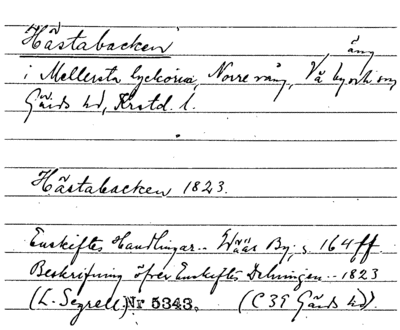 Hästabacken, äng
i Mellersta lyckorna, Norre vång, Vä by och sn
Gärds hd, Krstd. l.
Hästabacken 1823.
Enskiftes Handlingar.. Wääs By, s. 164 ff
Beskrifning öfver Enskiftes Delningen.. 1823
(L. Segrell) Nr 5343. (C 39 Gärds hd).